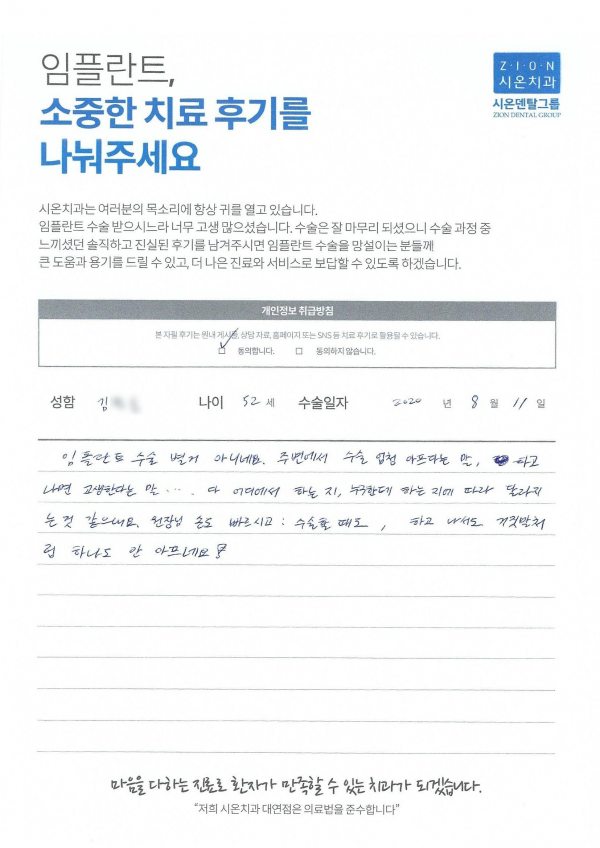 임플란트,
Z·I·O·N
시온치과
소중한 치료 후기를
시온덴탈그룹
ZION DENTAL GROUP
나눠주세요
시온치과는 여러분의 목소리에 항상 귀를 열고 있습니다.
임플란트 수술 받으시느라 너무 고생 많으셨습니다. 수술은 잘 마무리 되셨으니 수술 과정 중
느끼셨던 솔직하고 진실된 후기를 남겨주시면 임플란트 수술을 망설이는 분들께
큰 도움과 용기를 드릴 수 있고, 더 나은 진료와 서비스로 보답할 수 있도록 하겠습니다.
개인정보 취급방침
본 자필 후기는 원내 게시물, 상담 자료, 홈페이지 또는 SNS 등 치료 후기로 활용될 수 있습니다.
동의합니다. 동의하지 않습니다.
성함 김 나이 52 세 수술일자 2020 년 8 월 11 일
임플란트 수술 별거 아니네요. 주변에서 수술 엄청 아프다는 말, 하고
나면 고생한다는 말···· 다 어디에서 하는지, 누구한테 하는지에 따라 달라지
는것 같으네요. 원장님 손도 빠르시고 : 수술할 때도, 하고 나서도 거짓말처
럼 하나도 안 아프네요!
마음을 다하는 진료로 환자가 만족할 수 있는 치과가 되겠습니다.
"저희 시온치과 대연점은 의료법을 준수합니다"